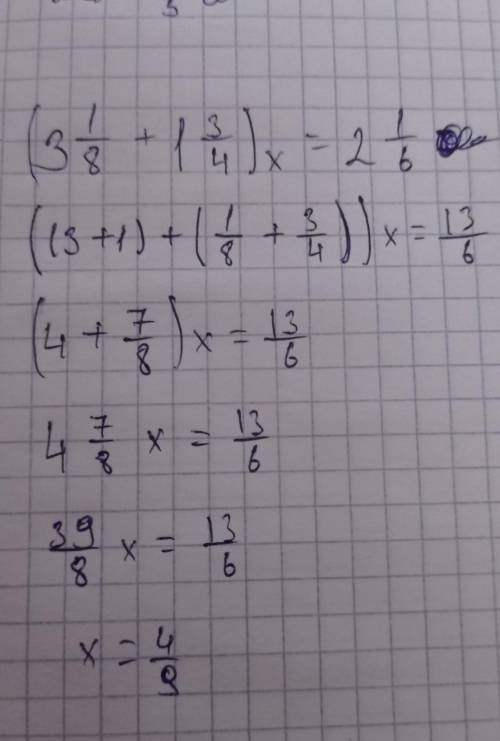 (3 1/8 + 1 3/4)x = 2 1/6
((3+1) + (1/8 + 3/4))x = 13/6
(4 + 7/8)x = 13/6
4 7/8 x = 13/6
39/8 x = 13/6
x = 4/9